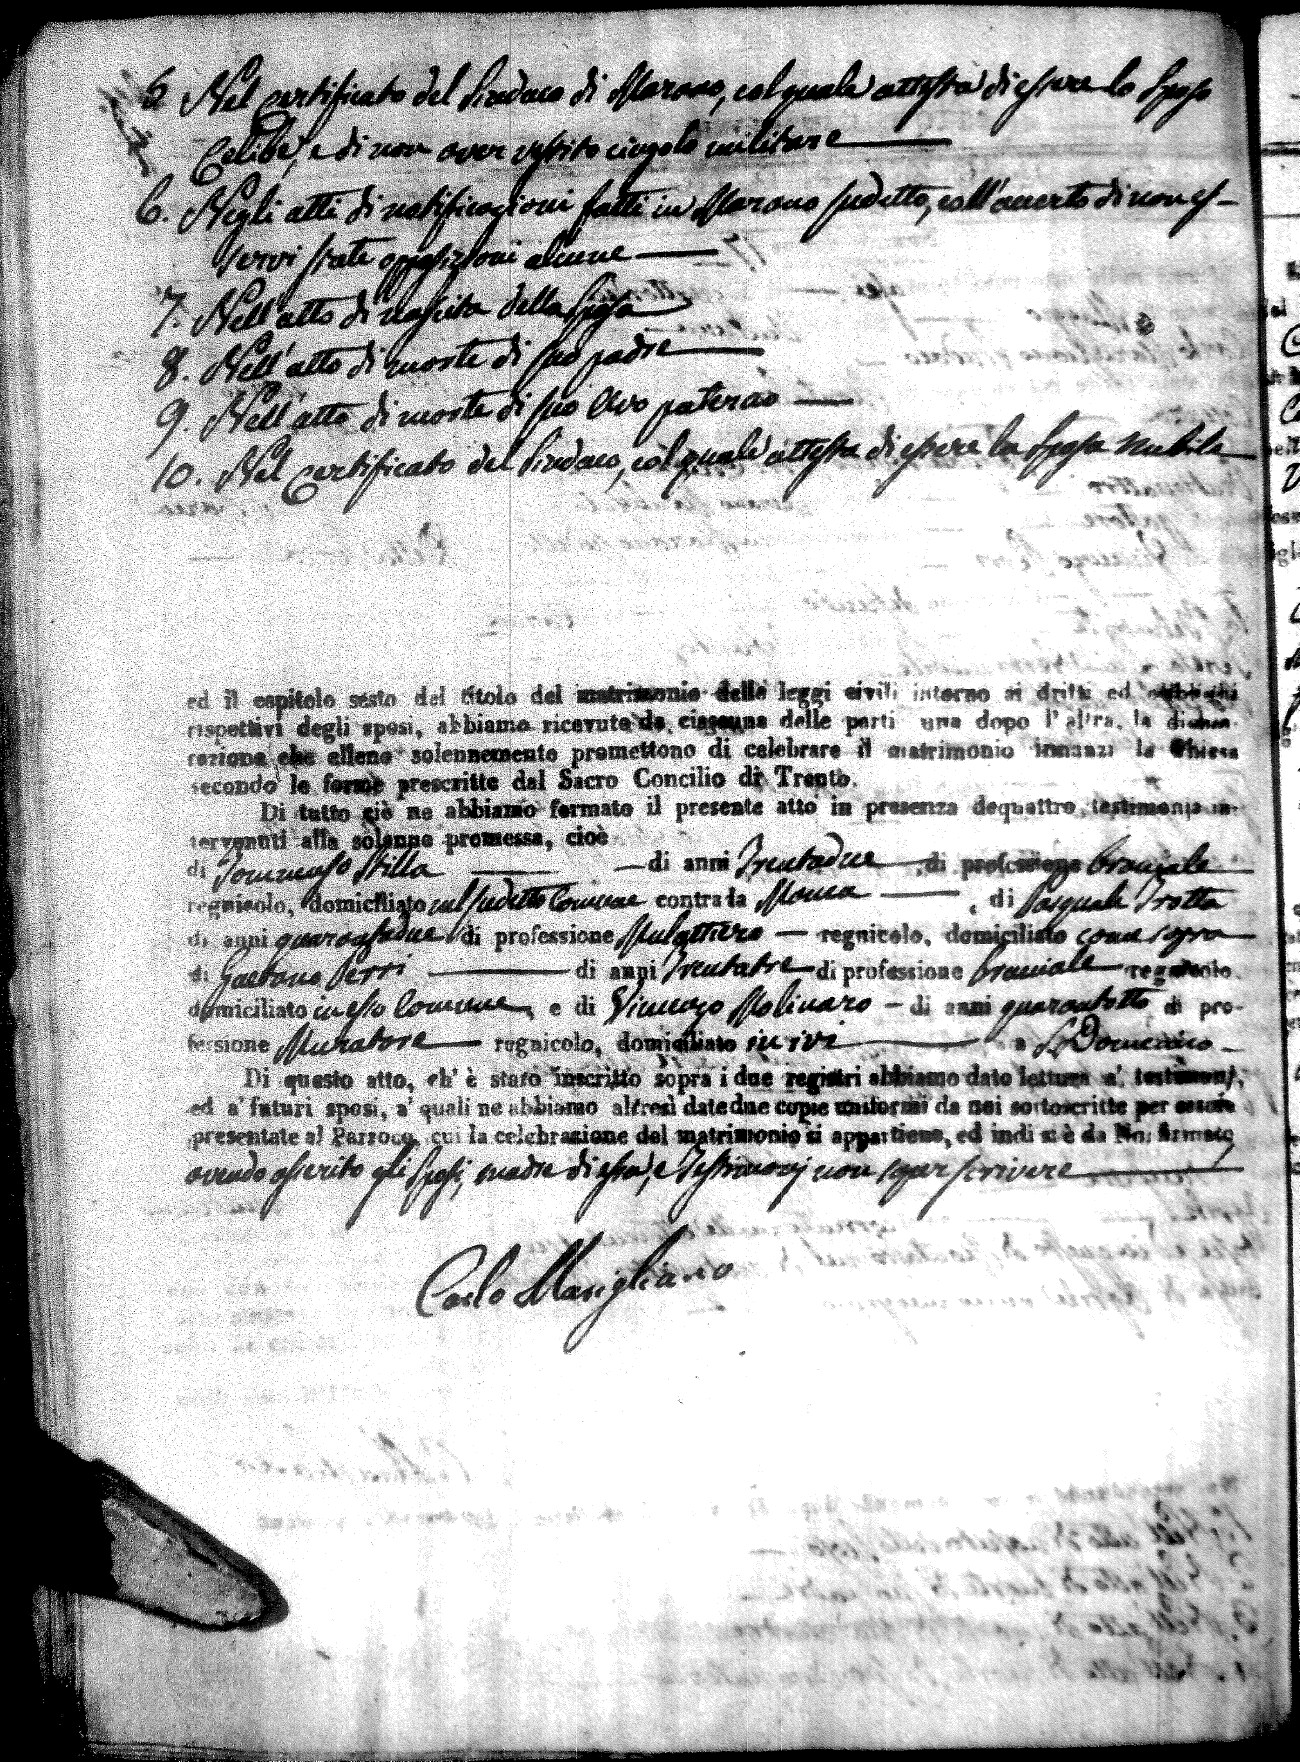 5 Nel certificato del Sindaco di Marano, col quale attesta di essere lo Sposo
Celibe, e di non aver vestito cingolo militare
6. Negli atti di notificazioni fatti in Marano sudetto, coll'accerto di non es-
servi state opposizioni alcune
7. Nell'atto di nascita della Sposa
8. Nell'atto di morte di suo padre
9. Nell'atto di morte di suo Avo paterno
10. Nel certificato del Sindaco, col quale attesta di essere la Sposa Nubile
ed il capitolo sesto del titolo del matrimonio delle leggi civili intorno ai dritti ed obblighi
rispettivi degli sposi, abbiamo ricevuto da ciascuna delle parti una dopo l'altra, la dichia-
razione che elleno solennemente promettono di celebrare il matrimonio innanzi la Chiesa
secondo le forme prescritte dal Sacro Concilio di Trento.
Di tutto ciò ne abbiamo formato il presente atto in presenza de quattro testimonia in-
tervenuti alla solenne promessa, cioè
di Tommaso Stilla di anni Trentadue di professione Braciale
regnicolo, domiciliato nel sudetto Comune contrada di Pasquale Trotta
di anni quarantadue di professione Mulattiero regnicolo, domiciliato come sopra
di Gaetano Perri di anni Trentatre di professione Braciale regnicolo
domiciliato in esso Comune, e di Vincenzo Molinaro di anni quarantotto di pro-
fessione Muratore regnicolo, domiciliato in ivi a S. Domenico
Di questo atto, ch'è stato inscritto sopra i due registri abbiamo dato lettura a' testimonj,
ed a' futuri sposi, a' quali ne abbiamo altresì date due copie uniformi da noi sottoscritte per essere
presentate al Parroco, cui la celebrazione del matrimonio si appartiene, ed indi si è da Noi firmato
avendo asserito gli Sposi, madre di essa, e Testimonj non saper scrivere
Carlo Marigliano